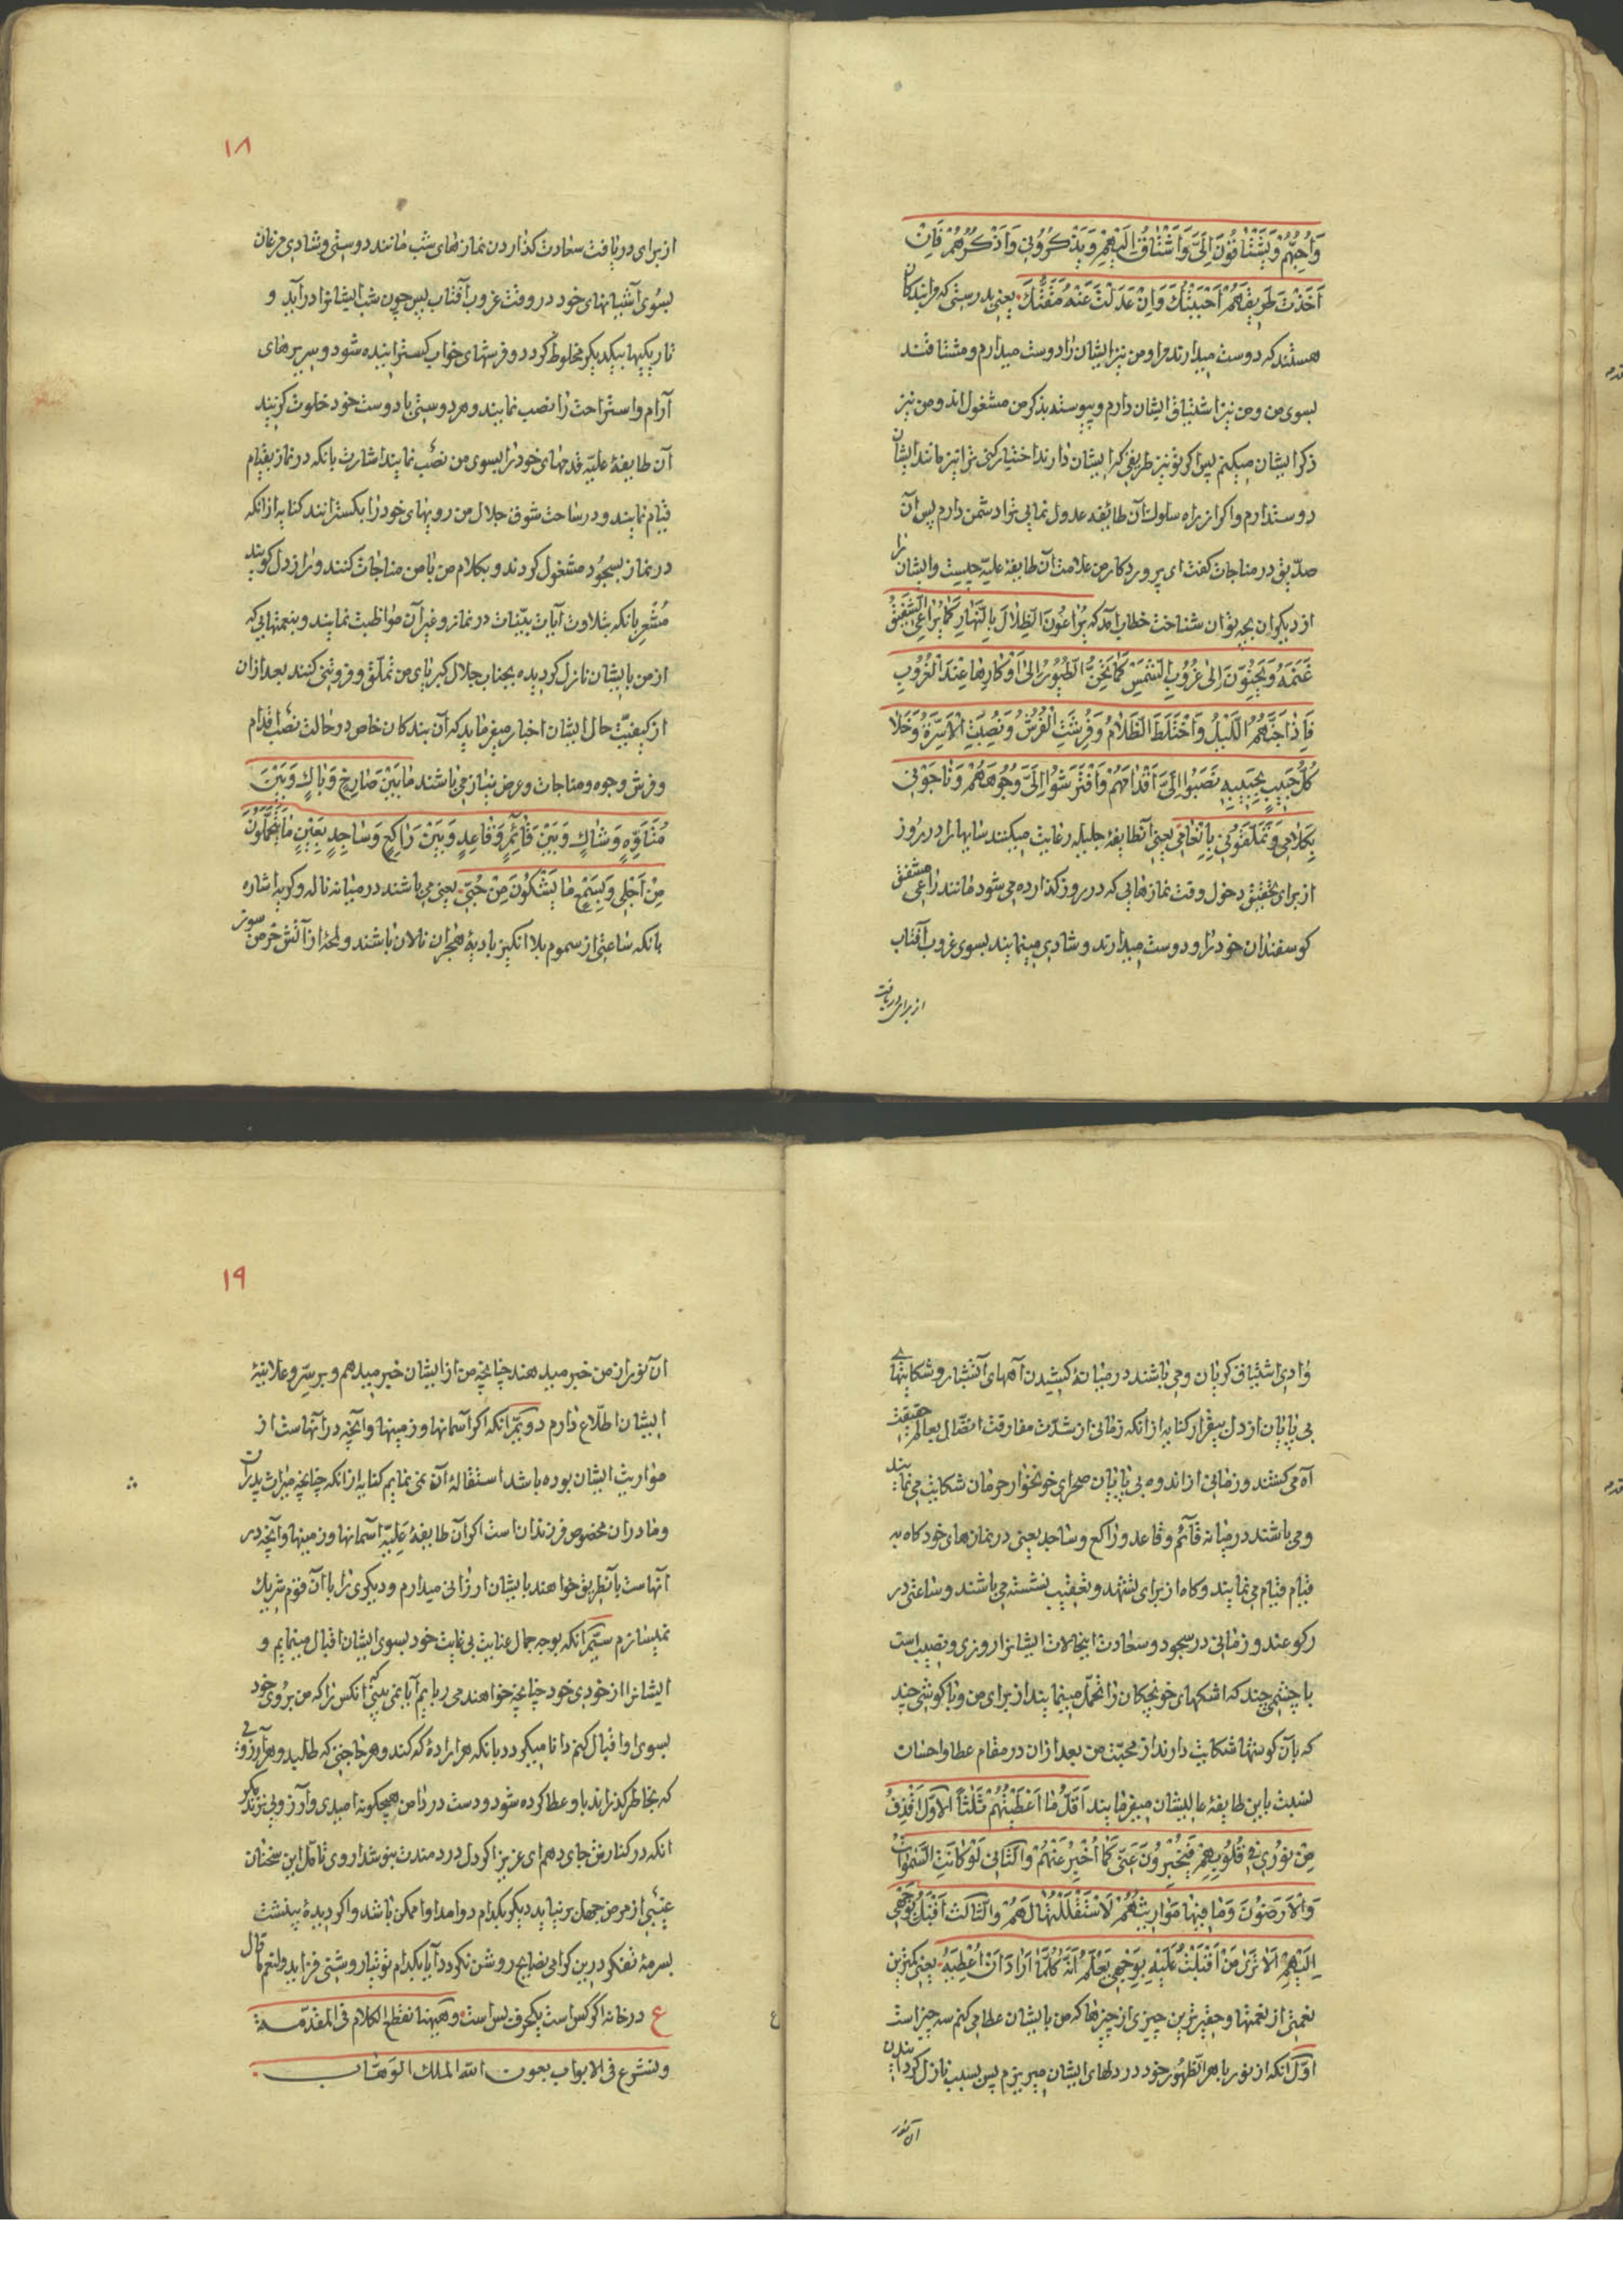 وَاُحِبُّهُمْ وَيَشْتَاقُونَ اِلَىَّ وَاَشْتَاقُ اِلَيْهِمْ وَيَذْكُرُونِى وَاَذْكُرُهُمْ فَاِنْ
اَخَذْتَ طَرِيقَهُمْ اَحْبَبْتُكَ وَاِنْ عَدَلْتَ عَنْهُ مَقَتُّكَ يعنى بدرستى كه مرا بندكان
هستند كه دوست ميدارند مرا و من نيز ايشان را دوست ميدارم و مشتاقند
بسوى من و من نيز اشتياق ايشان دارم و پيوسته بذكر من مشغول اند و من نيز
ذكر ايشان ميكنم پس اكر تو نيز طريقى كه ايشان دارند اختيار كنى ترا نيز مانند ايشان
دوست دارم و اكر از راه سلوك آن طائفه عدول نمايى ترا دشمن دارم پس آن
صديق در مناجات كفت اى پروردكار من علامت آن طايفهٔ عليّه چيست و ايشان را
از ديكران بچه توان شناخت خطاب آمد كه يُرَاعُونَ الظِّلَالَ بِالنَّهَارِ كَمَا يُرَاعِى الشَّفِيقُ
غَنَمَهُ وَيَحِنُّونَ اِلٰى غُرُوبِ الشَّمْسِ كَمَا يَحِنُّ الطُّيُورُ اِلٰى اَوْكَارِهَا عِنْدَ الْغُرُوبِ
فَاِذَا جَنَّهُمُ اللَّيْلُ وَاخْتَلَطَ الظَّلَامُ وَفُرِشَتِ الْفُرُشُ وَنُصِبَتِ الْاَسِرَّةُ وَخَلَا
كُلُّ حَبِيبٍ بِحَبِيبِهِ نَصَبُوا اِلَىَّ اَقْدَامَهُمْ وَافْتَرَشُوا اِلَىَّ وُجُوهَهُمْ وَنَاجَوْنِى
بِكَلَامِى وَتَمَلَّقُونِى بِاِنْعَامِى يعنى آنطايفهٔ جليله رعايت ميكنند سايها را در روز
از براى تحقيق دخول وقت نمازهايى كه در روز كذارده مى شود مانند راعى مشفق
كوسفندان خود را و دوست ميدارند و شادى مينمايند بسوى غروب آفتاب
از براى دريافت
١٨
از براى دريافت سعادت كذاردن نمازهاى شب مانند دوستى و شادى مرغان
بسوى آشيانهاى خود در وقت غروب آفتاب پس چون شب ايشانرا درآيد و
تاريكيها بيكديكر مخلوط كردد و فرشهاى خواب كسترانيده شود و سريرهاى
آرام و استراحت را نصب نمايند و هر دوستى با دوست خود خلوت كزيند
آن طايفهٔ عليّه قدمهاى خود را بسوى من نصب نمايند اشارت بانكه در نماز بقيام
قيام نمايند و در ساحت شوق جلال من رويهاى خود را بكسترانند كنايه از انكه
در نماز بسجُود مشغول كردند و بكلام من با من مناجات كنند و راز دل كويند
مُشْعِر بانكه بتلاوت آيات بيّنات در نماز و غير آن مواظبت نمايند و بنعمتهايى كه
از من بايشان نازل كرديده بجناب جلال كبرياى من تملّق و فروتنى كنند بعد از ان
از كيفيّت حال ايشان اخبار ميفرمايد كه آن بندكان خاص در حالت نصب اقدام
و فرش وجوه و مناجات و عرض نياز مى باشند مَا بَيْنَ صَارِخٍ وَبَاكٍ وَبَيْنَ
مُتَاَوِّهٍ وَشَاكٍ وَبَيْنَ قَائِمٍ وَقَاعِدٍ وَبَيْنَ رَاكِعٍ وَسَاجِدٍ بِعَيْنٍ مَا يَتَحَمَّلُونَ
مِنْ اَجْلِى وَبِسَمْعٍ مَا يَشْكُونَ مِنْ حُبِّى يعنى مى باشند در ميانه ناله و كريه اشاره
بانكه ساعتى از سموم بلا انكيز باديهٔ هجران نالان باشند و لمحهٔ از آتش خرمن سوز
وادى اشتياق كريان و مى باشند در ميانهٔ كشيدن آههاى آتشبار و شكايتهاى
بى پايان از دل بيقرار كنايه از انكه زمانى از شدّت مفارقت اتصال بعالم حقيقت
آه مى كشند و زمانى از اندوه بى پايان صحراى خونخوار حرمان شكايت مى نمايند
و مى باشند در ميانه قآئم و قاعد و راكع و ساجد يعنى در نمازهاى خود كاه به
قيام قيام مى نمايند و كاه از براى تشهّد و تعقيب نشسته مى باشند و ساعتى در
ركوعند و زمانى در سجود و سعادت اينحالات ايشانرا روزى و نصيب است
با چشمى چند كه اشكهاى خونچكان را تحمّل مينمايند از براى من و با كوشى چند
كه بآن كوشها شكايت دارند از محبّت من بعد از ان در مقام عطا و احسان
نسبت باين طايفهٔ عاليشان ميفرمايند اَقَلُّ مَا اُعْطِيهُمْ ثَلٰثًا الْاَوَّلُ اَقْذِفُ
مِنْ نُورِى فِى قُلُوبِهِمْ فَيُخْبِرُونَ عَنِّى كَمَا اُخْبِرُ عَنْهُمْ وَالثَّانِى لَوْ كَانَتِ السَّمٰوَاتُ
وَالْاَرَضُونَ وَمَا فِيهَا مَوَارِيثَهُمْ لَاسْتَقْلَلْتُهَا لَهُمْ وَالثَّالِثُ اُقْبِلُ بِوَجْهِى
اِلَيْهِمْ اَلَا تَرٰى مَنْ اَقْبَلْتُ عَلَيْهِ بِوَجْهِى يَعْلَمُ اَنَّهُ كُلَّمَا اَرَادَ اَنْ اُعْطِيَهُ يعنى كمترين
نعمتى از نعمتها و حقيرترين چيزى از چيزها كه من بايشان عطا مى كنم سه چيز است
اوّل انكه از نور باهر الظهُور خود در دلهاى ايشان ميريزم پس بسبب نازل كردانيدن
آن نور
١٩
ان نور از من خبر ميدهند چنانچه من از ايشان خبر ميدهم و بر سرّ و علانيهٔ
ايشان اطّلاع دارم دويّم آنكه اكر آسمانها و زمينها و آنچه در آنهاست از
مواريث ايشان بوده باشد استقلالهٔ آن نمى نمايم كنايه از انكه چنانچه ميراث پدران
و مادران مخصوص فرزندان است اكر آن طايفهٔ عَلِيّه آسمانها و زمينها و آنچه در
آنهاست بآنطريق خواهند بايشان ارزانى ميدارم و ديكرى را با آن قوم شريك
نميسازم سيّم آنكه بوجه جمال عنايت بى غايت خود بسوى ايشان اقبال مينمايم و
ايشانرا از خودى خود چنانچه خواهند مى ربايم آيا نمى بينى آنكس را كه من بروى خود
بسوى او اقبال كنم دانا ميكردد بانكه هر ارادهٔ كه كند و هر حاجتى كه طلبد و هر آرزوئى
كه بخاطر كذراند باو عطا كرده شود و دست در دامن هيچكونه اميدى و آرزويى نزند مكر
انكه در كنارش جاى دهم اى عزيز اكر دل دردمندت بنوشداروى تامّل اين سخنان
غيبى از مرض جهل برنيايد ديكر بكدام دوا مداوا ممكن باشد و اكر ديدهٔ بينشت
بسرمهٔ تفكّر درين كرامى نصايح روشن نكردد آيا بكدام توتيا روشنى فزايد ولنعم ما قال
ع در خانه اكر كس است يكحرف بس است وههنا نقطع الكلام فى المقدّمه
ونشرع فى الابواب بعون الله الملك الوهّاب